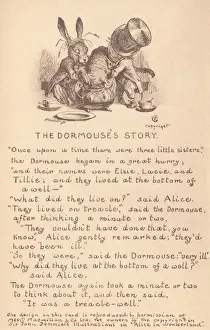 copyright
THE DORMOUSE'S STORY.
"Once upon a time there were three little sisters,"
the Dormouse began in a great hurry;
"and their names were Elsie, Lacie, and
Tillie; and they lived at the bottom of
a well—"
"What did they live on?" said Alice.
"They lived on treacle," said the Dormouse,
after thinking a minute or two.
"They couldn't have done that, you
know," Alice gently remarked; "they'd
have been ill."
"So they were," said the Dormouse; "very ill."
"Why did they live at the bottom of a well?"
said Alice.
The Dormouse again took a minute or two
to think about it, and then said,
"It was a treacle-well."
The design on this card is reproduced by permission of
Messrs Macmillan & Co. Ltd. the owners of the copyright in
Sir John Tenniel's illustrations in "Alice in Wonderland."